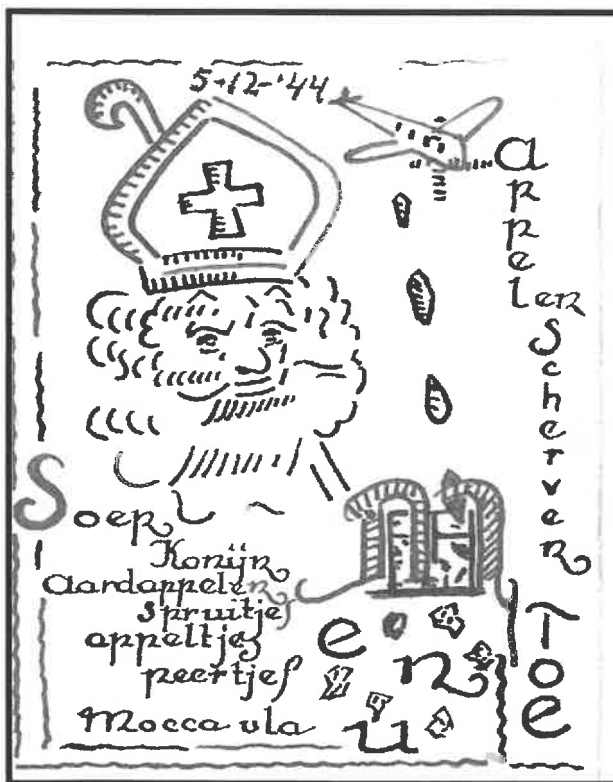 5-12-'44
Appelen
Scherven
Toe
Soep
Konijn
Aardappelen
Spruitjes
appeltjes
peertjes
Mocca vla
Menu